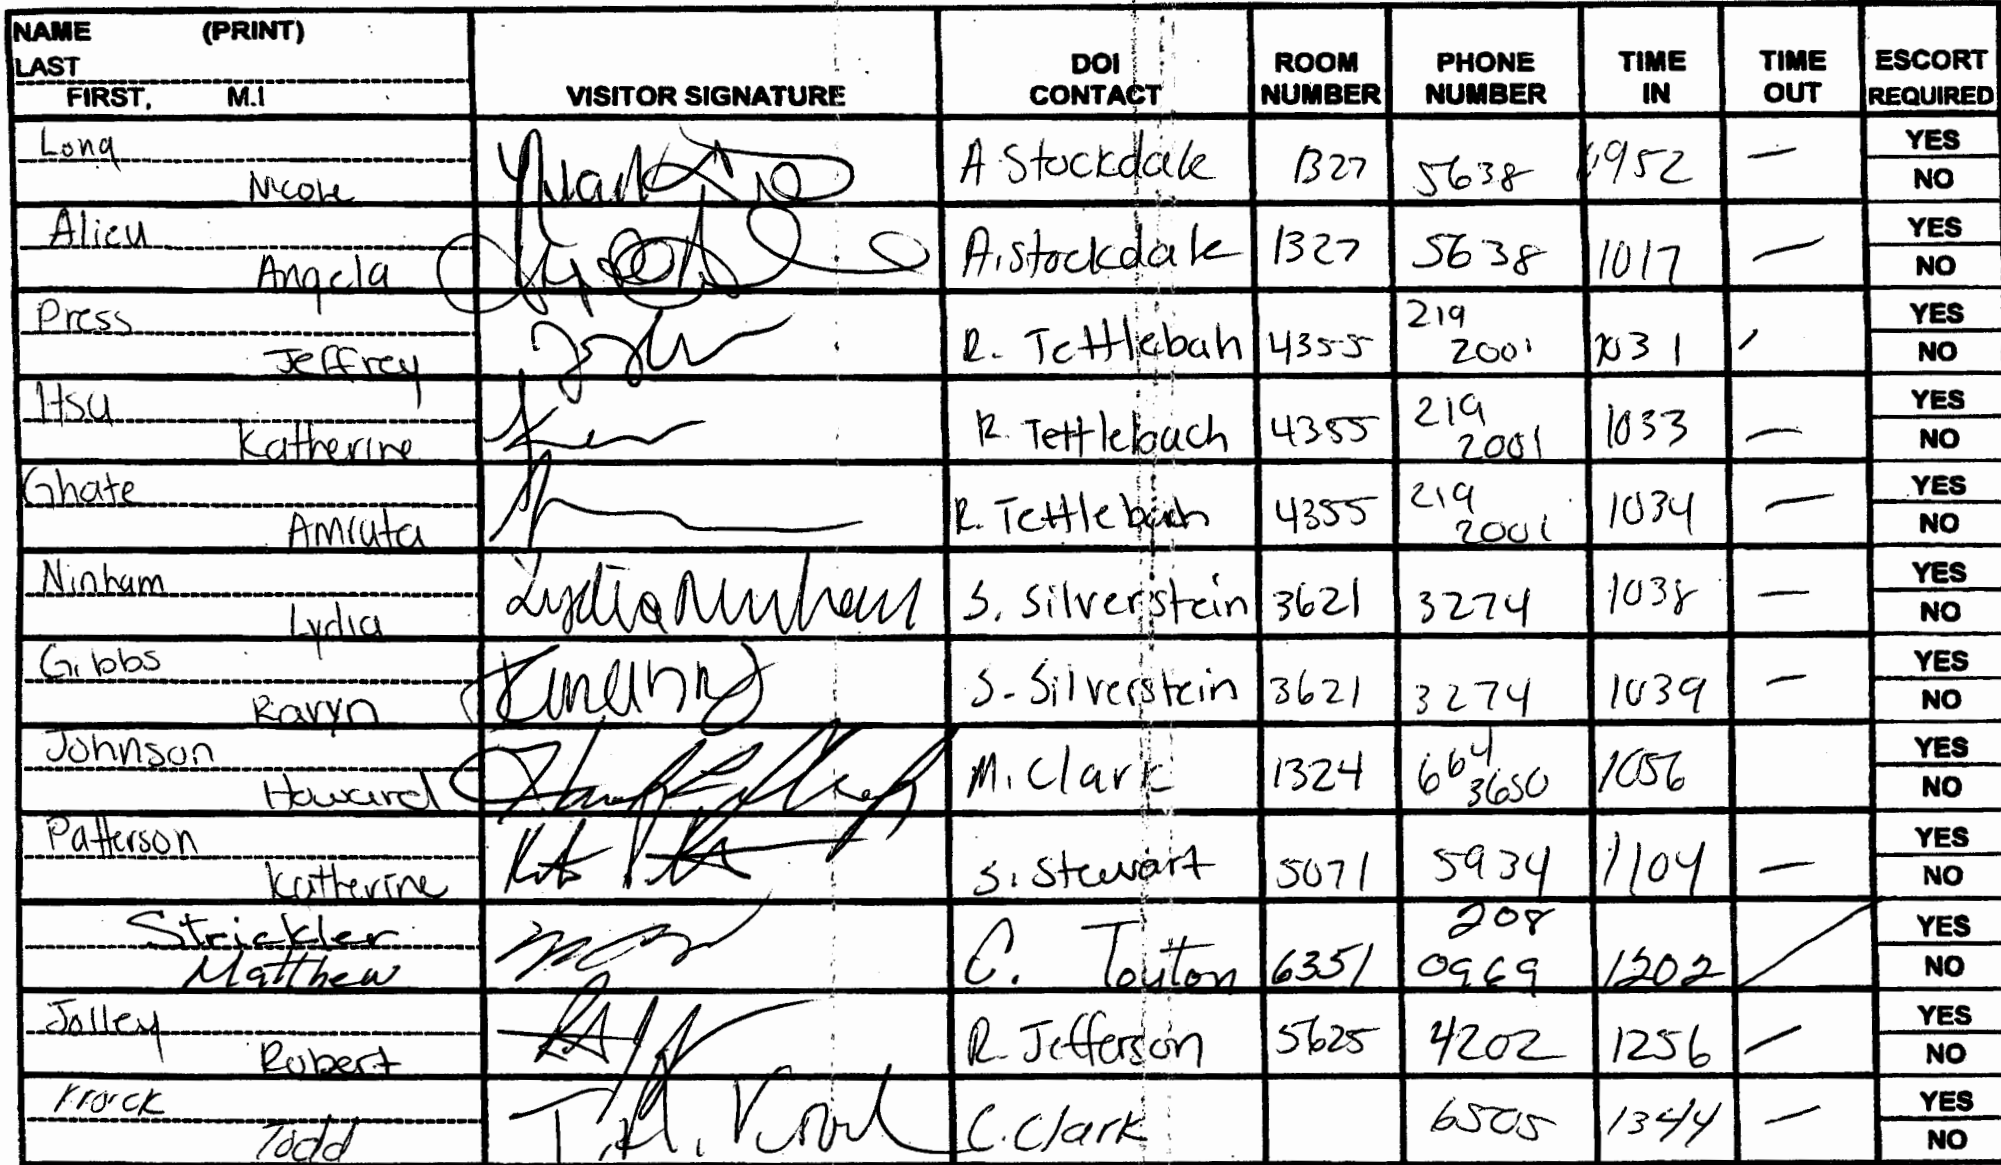 NAME (PRINT)
LAST
FIRST, M.I
VISITOR SIGNATURE
DOI CONTACT
ROOM NUMBER
PHONE NUMBER
TIME IN
TIME OUT
ESCORT REQUIRED
Long
Nicole
A Stockdale 1327 5638 0952 — YES
NO
Alieu
Angela
A. Stockdale 1327 5638 1017 — YES
NO
Press
Jeffrey
R. Tettlebah 4355 219 2001 1031 YES
NO
Hsu
Katherine
R. Tettlebach 4355 219 2001 1033 — YES
NO
Ghate
Amruta
R. Tettlebah 4355 219 2001 1034 — YES
NO
Ninham
Lydia
Lydia Ninham S. Silverstein 3621 3274 1038 — YES
NO
Gibbs
Raryn
S. Silverstein 3621 3274 1039 — YES
NO
Johnson
Howard
M. Clark 1324 664 3650 1056 YES
NO
Patterson
Katherine
S. Stewart 5071 5934 1104 — YES
NO
Strickler
Matthew
C. Touton 6351 208 0969 1202 YES
NO
Jolley
Robert
R. Jefferson 5625 4202 1256 — YES
NO
Todd
C. Clark 6505 1344 — YES
NO